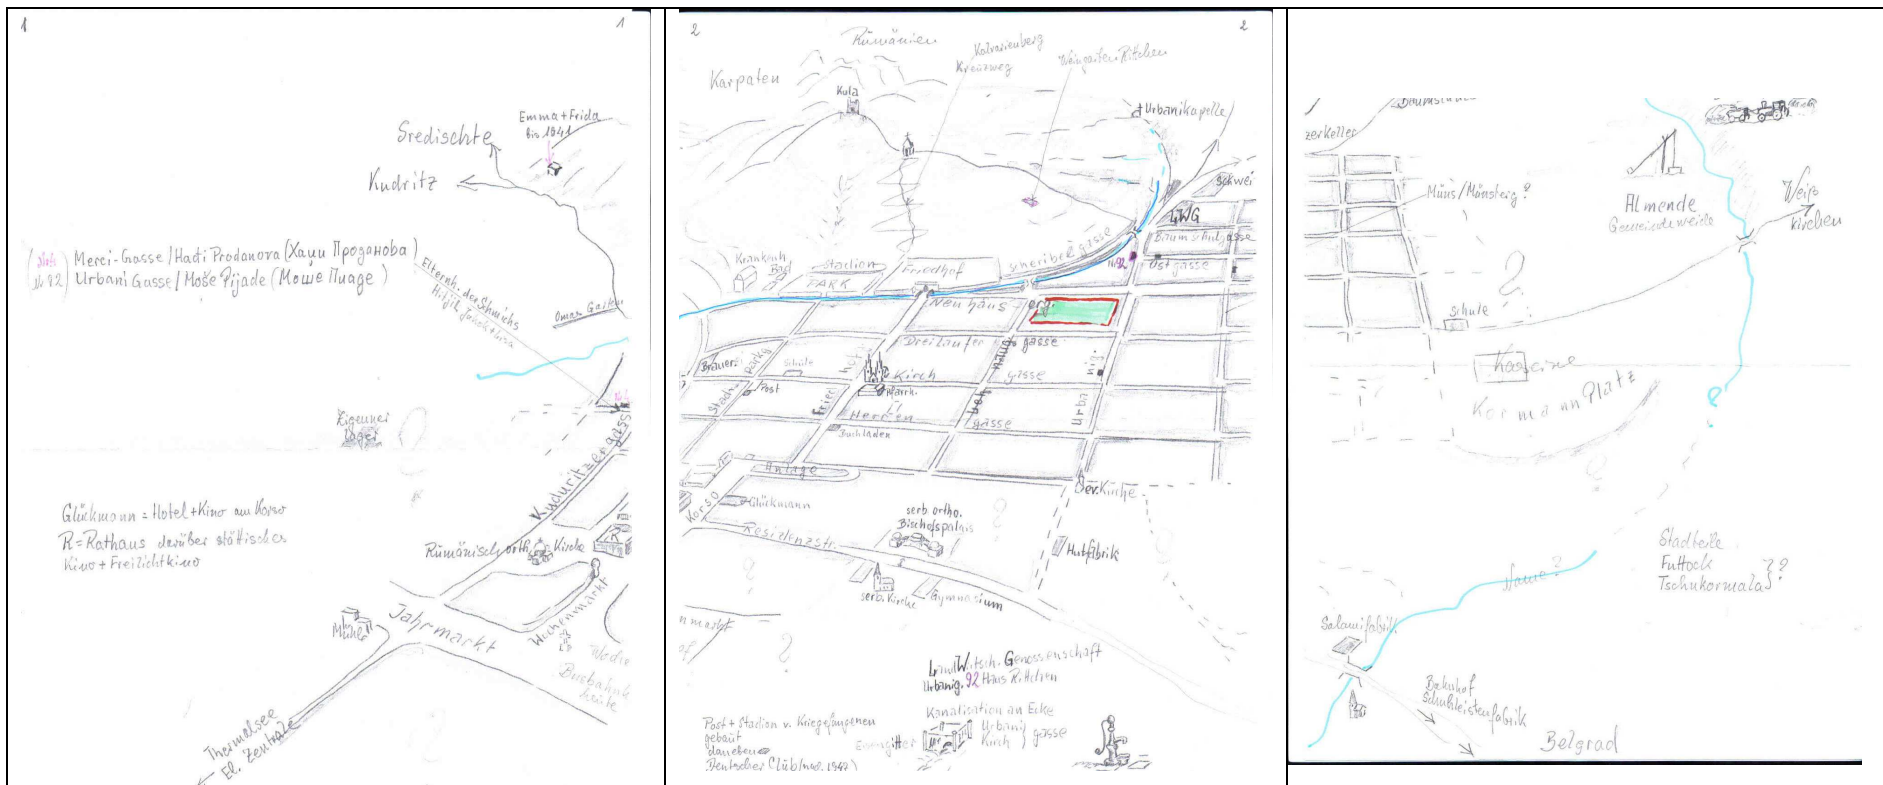 1
1
Sredischte
Emma + Frida
bis 1941
Kudritz
Merci-Gasse / Hađi Prodanova (Хаџи Проданова)
Nr 92
Urbani Gasse / Moše Pijade (Моше Пиаде)
Elternh. der Schmichs
Omas Garten
Zigeuner
lager
Kuduritzergasse
Glückmann = Hotel + Kino am Korso
R = Rathaus darüber stättisches
Kino + Freilichtkino
Rumänisch orth. Kirche
R
Jahrmarkt
Mühle
Wochenmarkt
Busbahnh
heute
Thermalsee
El. Zentrale
2
2
Rumänien
Karpaten
Kalvarienberg
Kreuzweg
Weingarten Rittchen
Kula
Urbanikapelle
Schwei
LWG
Baumschulgasse
Schreibergasse
Nr. 92
Ostgasse
Krankenh
Bad
Stadion
PARK
Friedhof
Neuhäus
erg
Dreiläufer gasse
Brauer
Stadt
Parkg
Schule
Post
Kirch gasse
Pfarrh.
Fried
hof
Herren gasse
Buchladen
Urba
nig.
Anlage
Korso
Glückmann
ev. Kirche
Residenzstr.
serb. ortho.
Bischofspalais
Hutfabrik
serb. Kirche
Gymnasium
nmarkt
of
LandWirtsch. Genossenschaft
Urbanig. 92 Haus Rittchen
Post + Stadion v. Kriegsfangenen
gebaut
daneben
Deutscher Club
Kanalisation an Ecke
Eisengitter
Urbani
Kirch } gasse
zerkeller
Müns/Münsterg?
Almende
Gemeindeweide
Weiß
kirchen
?
Schule
Kaserne
Kormann Platz
?
Stadteile
Futtock
Tschukormala } ?
Name?
Salamifabrik
Bahnhof
Schuhleistenfabrik
Belgrad